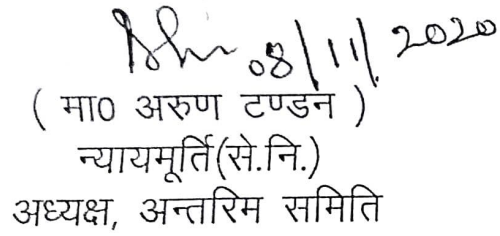 08/11/2020
( मा0 अरुण टण्डन )
न्यायमूर्ति(से.नि.)
अध्यक्ष, अन्तरिम समिति